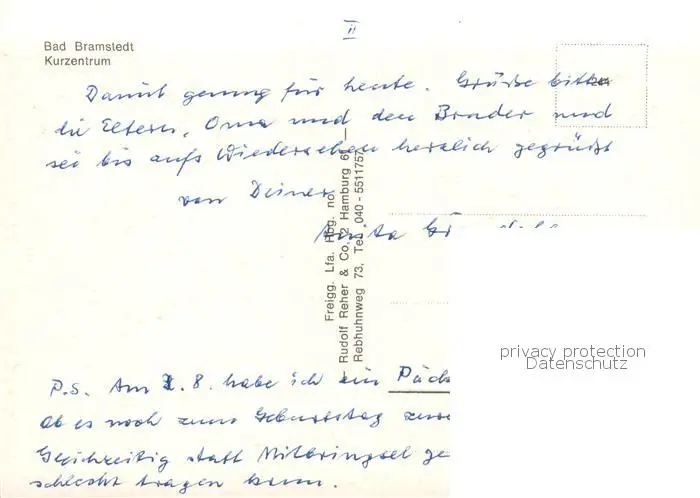 II
Bad Bramstedt
Kurzentrum
Damit genung für heute. Grüße bitte
die Eltern, Oma und den Bruder und
sei bis aufs Wiedersehen herzlich gegrüßt
von Deiner
Anita
Freigg. Lfa. Hbg. no.
Rudolf Reher & Co, 2 Hamburg 6
Rebhuhnweg 73, Tel. 040 - 5511757
privacy protection
Datenschutz
P.S. Am 2.8. habe ich ein Päck
Ob es noch zum Geburtstag
Gleichzeitig statt Mitbringsel ge
schlecht tragen kann.